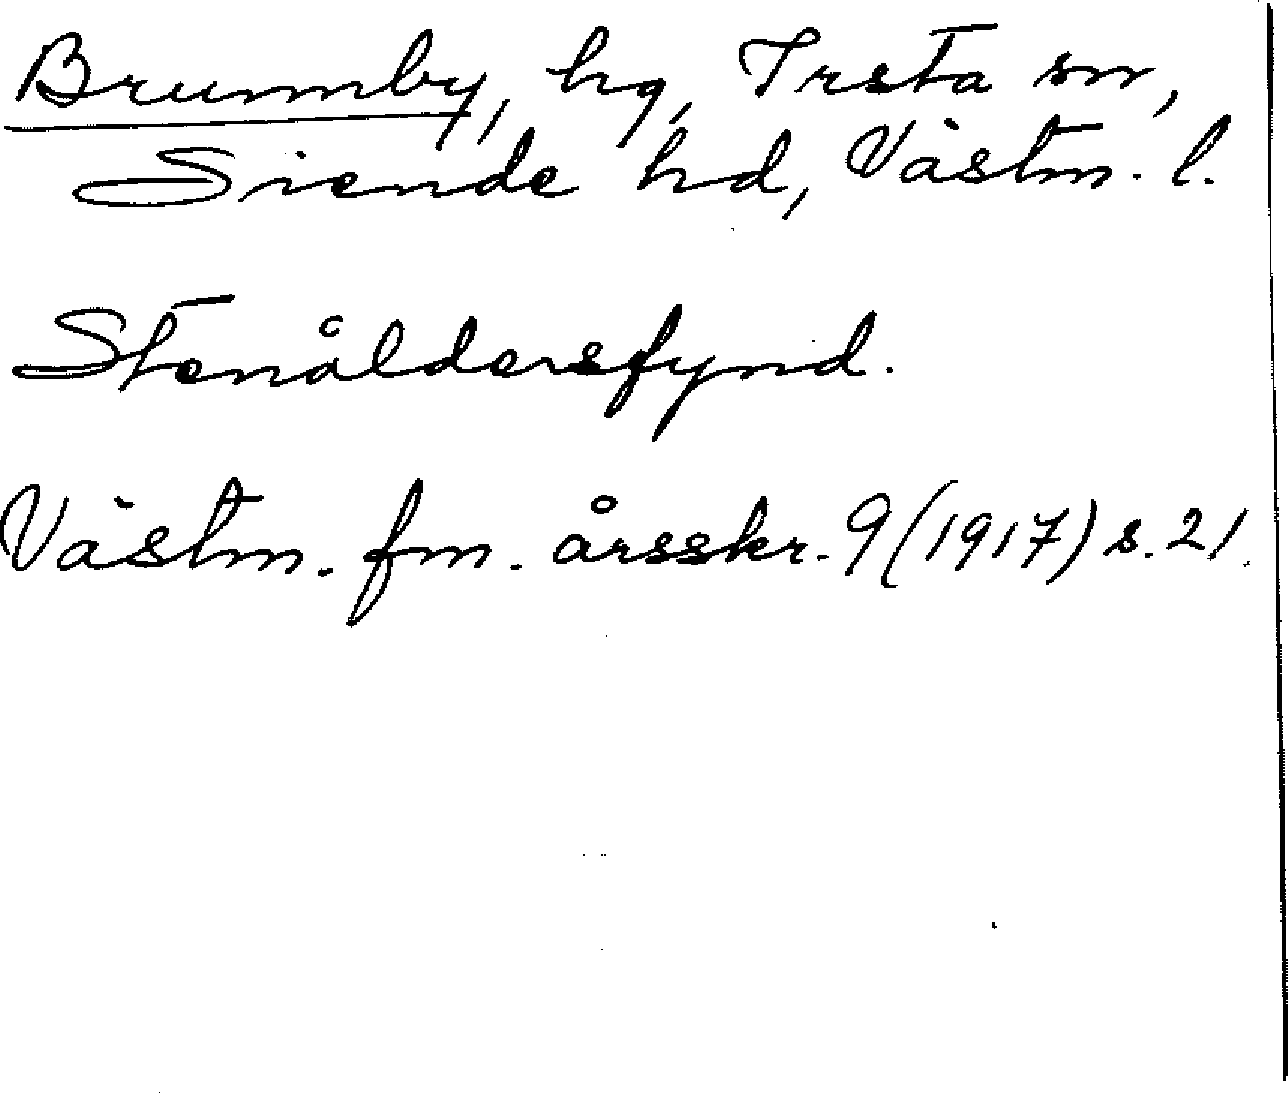 Brunnby, hg, Irsta sn,
Siende hd, Västm. l.
Stenåldersfynd.
Västm. fm. årsskr. 9 (1917) s. 21.